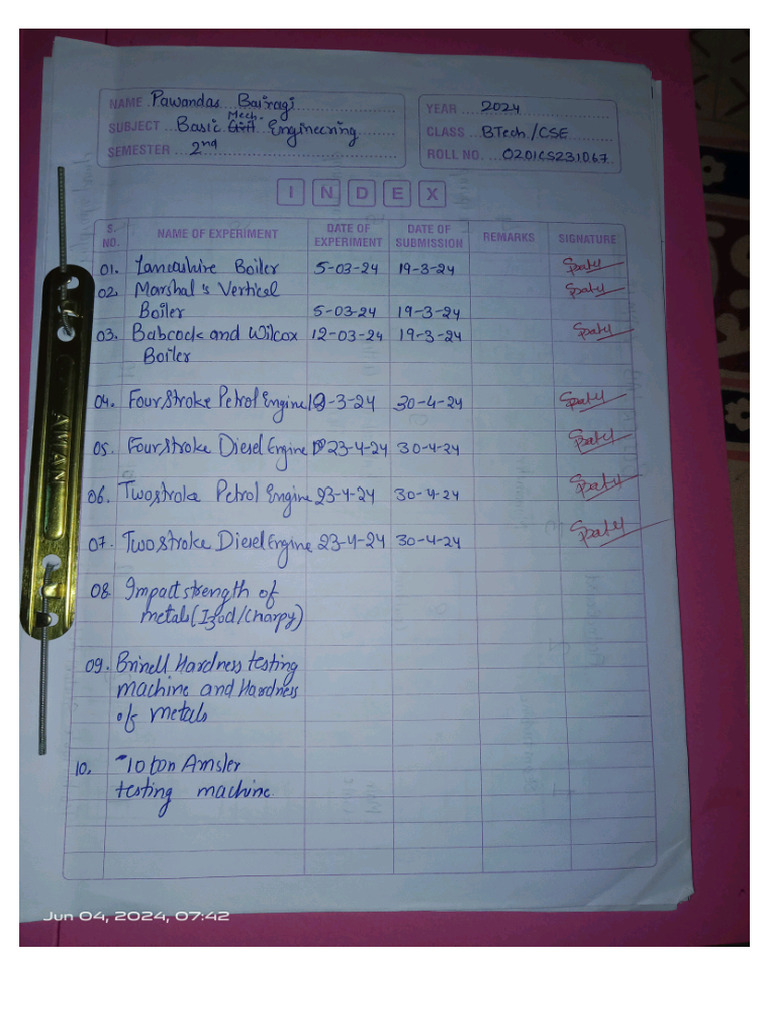 NAME Pawandas Bairagi
YEAR 2024
SUBJECT Basic Mech. Engineering
CLASS BTech/CSE
SEMESTER 2nd
ROLL NO. 0201CS231067
INDEX
S. NO. NAME OF EXPERIMENT DATE OF EXPERIMENT DATE OF SUBMISSION REMARKS SIGNATURE
01. Lancashire Boiler 5-03-24 19-3-24
02. Marshal's Vertical
Boiler 5-03-24 19-3-24
03. Babcock and Wilcox 12-03-24 19-3-24
Boiler
04. Four stroke Petrol Engine 19-3-24 30-4-24
05. Four stroke Diesel Engine 23-4-24 30-4-24
06. Two stroke Petrol Engine 23-4-24 30-4-24
07. Two stroke Diesel Engine 23-4-24 30-4-24
08. Impact strength of
metals (Izod/Charpy)
09. Brinell Hardness testing
machine and Hardness
of metals
10. 10 ton Amsler
testing machine
AIMAN
Jun 04, 2024, 07:42